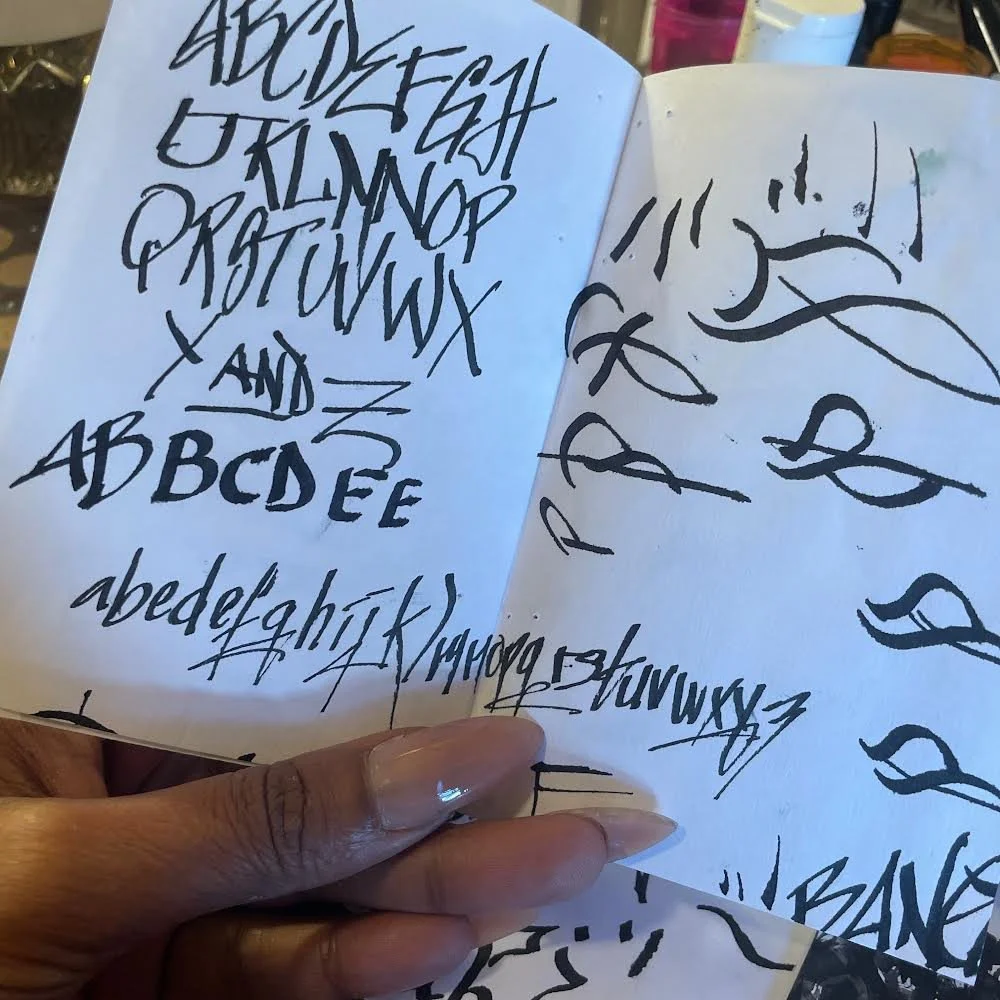 ABCDEFGH
IJKLMNOP
QRSTUVWX
Y AND Z
ABBCDEE
abcdefghijklmnopqrstuvwxyz
R
R
B
P
BANG